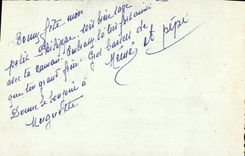 Bonne fête mon
petit Philippe. Sois bien sage
avec ta maman. Embrasse la très fort ainsi
que ton grand frère. Gros baisers de
Mémé et pépé
Donne le bonjour à
Huguette